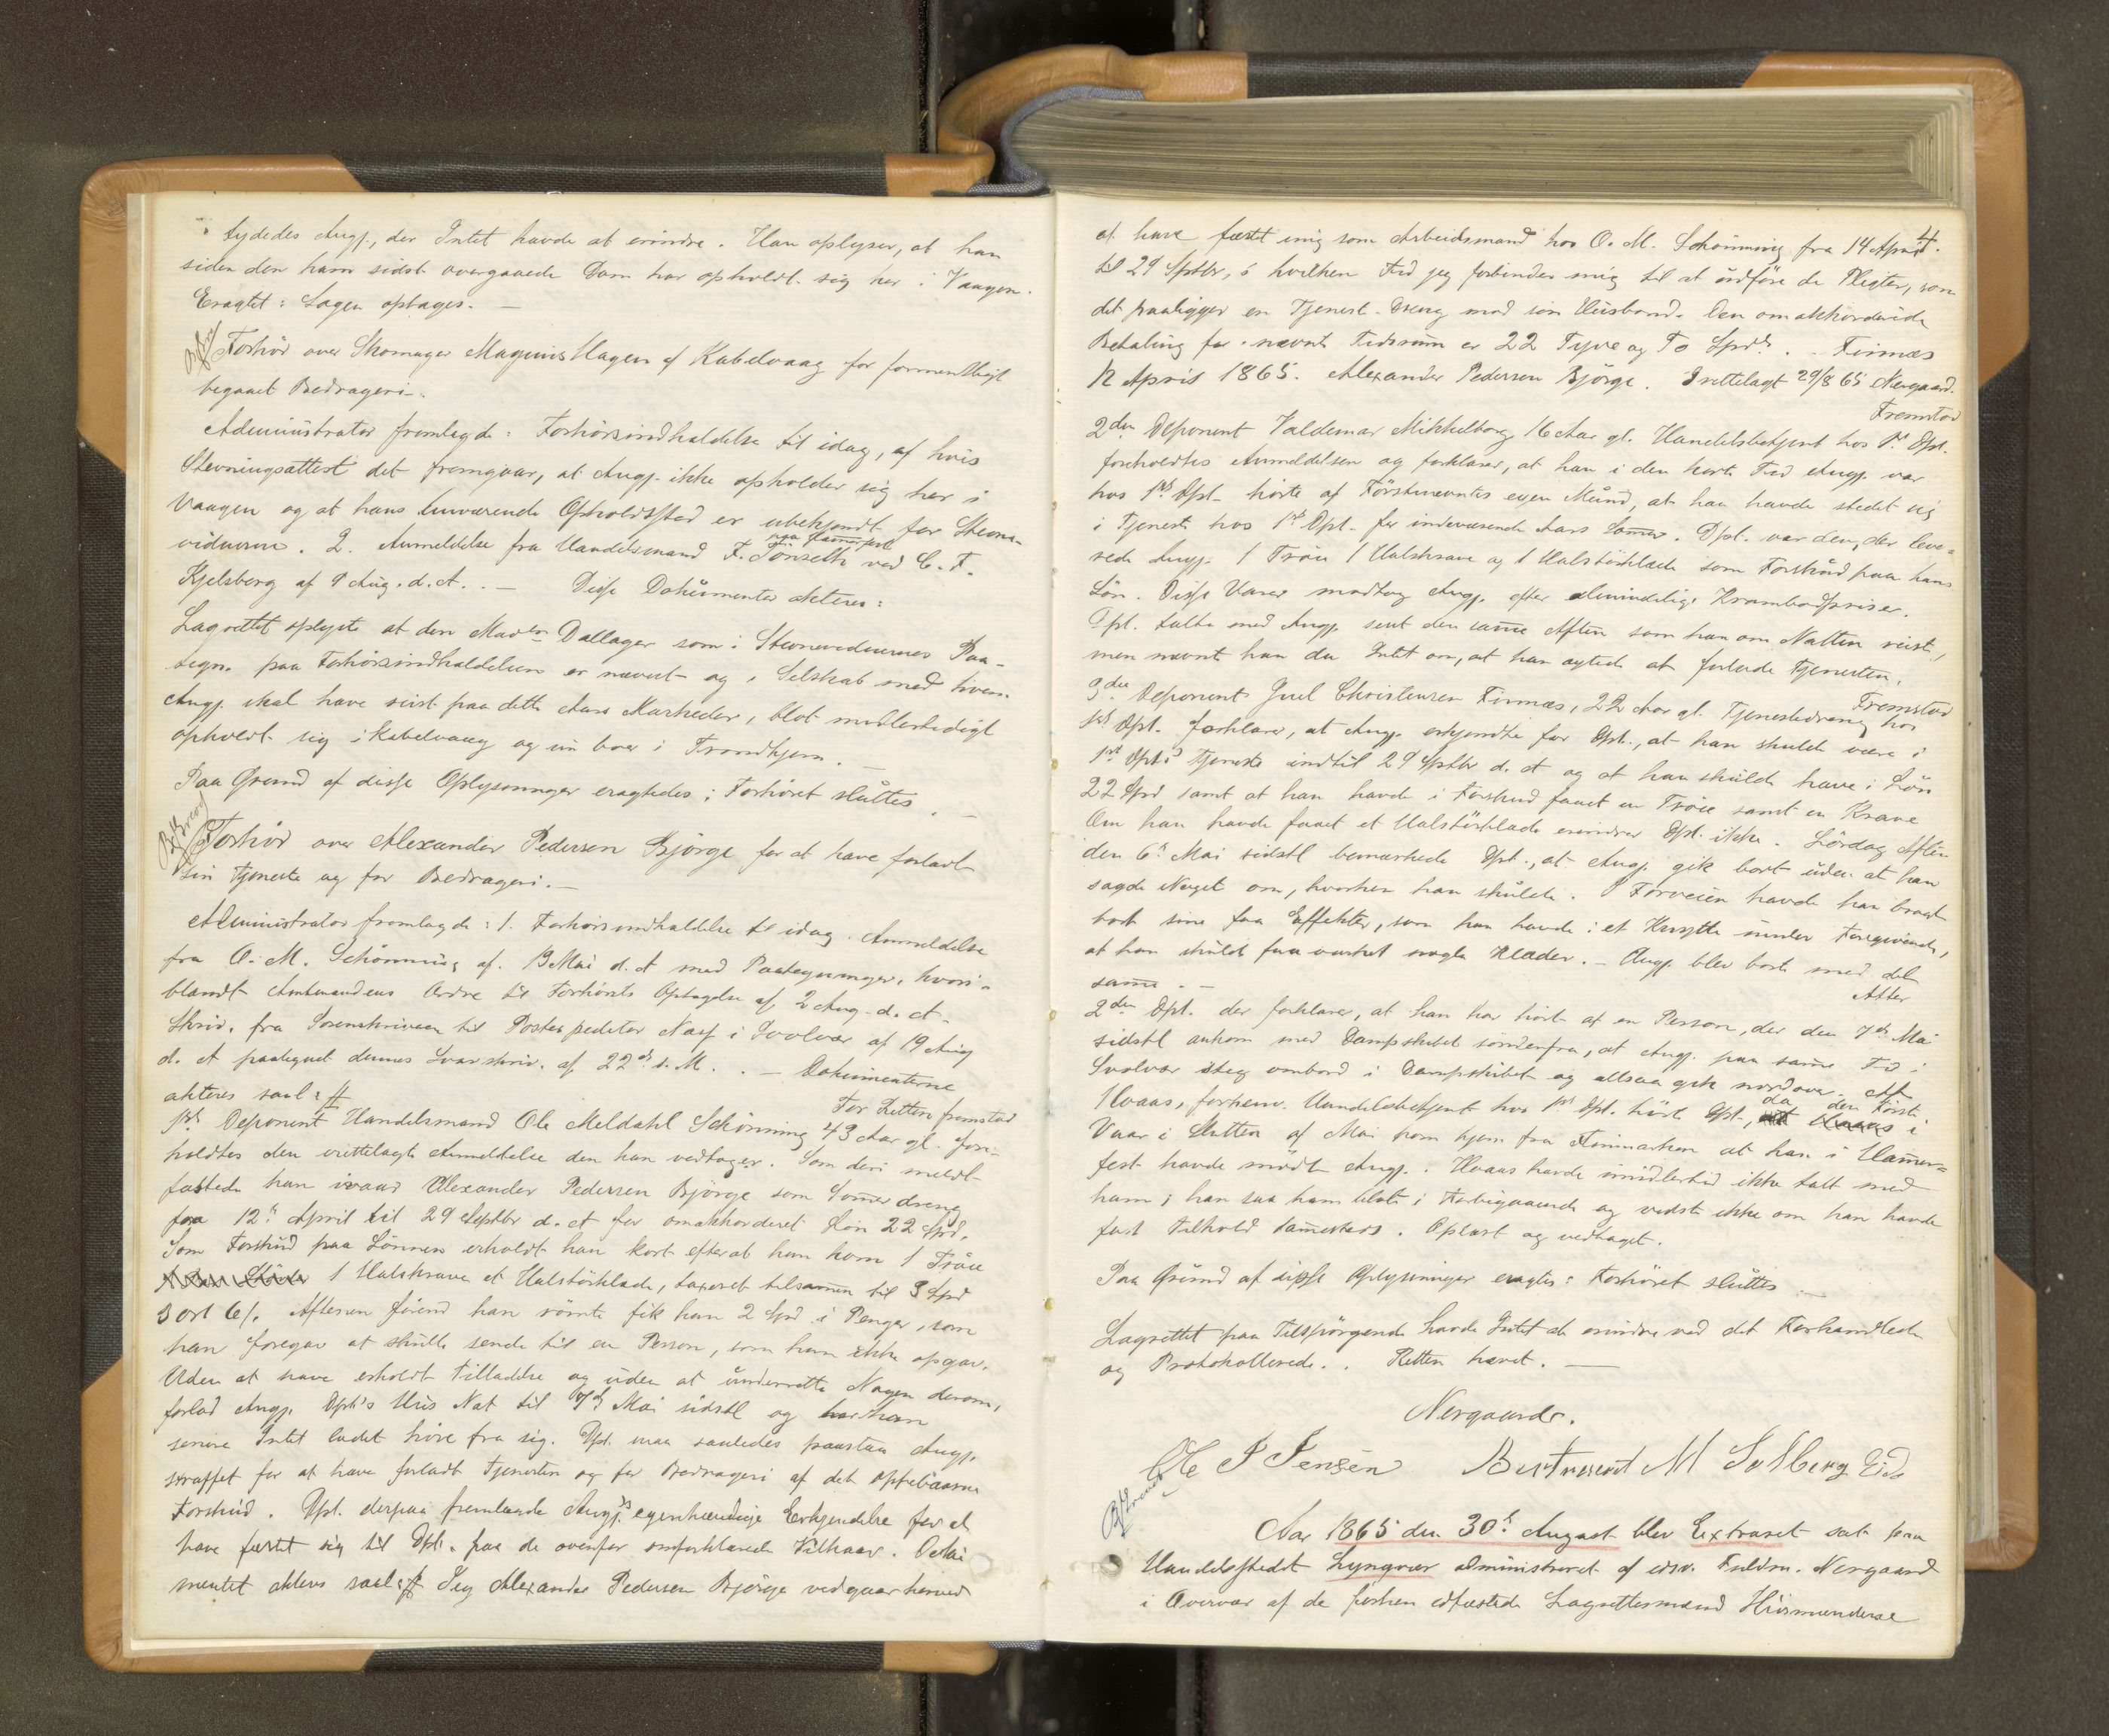 tydedes Angj., der Intet havde at erindre. Han oplyser, at han
siden den ham sidst overgaaede Dom har opholdt sig her i Vaagen.
Eragtet: Sagen optages. —
Forhör over Skomager Magnus Hagen af Kabelvaag for formentligt
begaaet Bedrageri.
Administrator fremlagde: Forhörsindkaldelse til idag, af hvis
Stevningsattest det fremgaar, at Angj. ikke opholder sig her i
Vaagen og at hans nuværende Opholdssted er ubekjendt for Stevne-
vidnerne. 2. Anmeldelse fra Handelsmand F. Tönseth ved C. F.
Kjelsberg af 9 Aug. d. A. . — Disse Dokumenter akteres:
Lagrettet oplyste at den Dallager som i Stevnevidnernes Paa-
tegn. paa Forhörsindkaldelsen er nævnt og i Selskab med hvem
Angj. skal have reist paa dette Aars Markeder, blot midlertidigt
opholdt sig i Kabelvaag og nu boer i Trondhjem. —
Paa Grund af disse Oplysninger eragtedes: Forhöret sluttes. —
Forhör over Alexander Pedersen Björge for at have forladt
sin Tjeneste og for Bedrageri. —
Administrator fremlagde: 1. Forhörsindkaldelse til idag. Anmeldelse
fra O. M. Schönning af 19 Mai d. A med Paategninger, hvori-
blandt Amtmandens Ordre til Forhörets Optagelse af 2 Aug. d. A.
Skriv. fra Sorenskriveren til Postexpeditör i Svolvær af 19 Aug
d. A paategnet dennes Svarskriv. af 22de s. M. . — Dokumenterne
akteres saal:
For Retten fremstod
1ste Deponent Handelsmand Ole Meldahl Schönning 43 Aar gl. fore-
holdtes den irettelagte Anmeldelse den han vedtager. Som deri meldt
fæstede han ivaar Alexander Pedersen Björge som Sommerdreng
fra 12te April til 29 Septbr d. A for omakkorderet Lön 22 Spd.
Som Forskud paa Lönnen erholdt han kort efterat han kom 1 Tröie
1 Halskrave et Halstörklæde, taxeret tilsammen til 3 Spd
3 ort 6/. Aftenen förend han römte fik han 2 Spd i Penge, som
han foregav at skulle sende til en Person, som han ikke opgav.
Uden at have erholdt Tilladelse og uden at underrette Nogen derom,
forlod Angj. Dpt's Huus Nat til 7de Mai sidstl og har han
senere Intet ladet höre fra sig. Dpt. maa saaledes paastaa Angj.
straffet for at have forladt Tjenesten og for Bedrageri af det oppebaarne
Forskud. Dpt. derpaa fremlagde Angj's egenhændige Erkjendelse for at
have fæstet sig til Dpt. paa de ovenfor omforklarede Vilkaar. Doku-
mentet akteres saal: Jeg Alexander Pedersen Björge vedgaar herved
4.
at have fæstet mig som Arbeidsmand hos O. M. Schönning fra 14 April
til 29 Sptbr, i hvilken Tid jeg forbinder mig til at udföre de Pligter, som
det paaligger en Tjeneste-Dreng mod sin Husbond. Den omakkorderede
Betaling for nævnte Tidsrum er 22 Tyve og To Spd. . Finnæs
12 April 1865. Alexander Pedersen Björge. Irettelagt 29/8 65 Nergaard.
Fremstod
2den Deponent Valdemar Mikkelborg 16 Aar gl. Handelsbetjent hos 1ste Dpt.
foreholdtes Anmeldelsen og forklarer, at han i den korte Tid Angj. var
hos 1ste Dpt. hörte af Förstnævntes egen Mund, at han havde stedet sig
i Tjeneste hos 1ste Dpt. for indeværende Aars Sommer. Dpt. var den, der leve-
rede Angj. 1 Tröie 1 Halskrave og 1 Halstörklæde som Forskud paa hans
Lön. Disse Varer modtog Angj. efter almindelige Krambodpriser.
Dpt. talte med Angj. sent den samme Aften som han om Natten reiste,
men nævnte han da Intet om, at han agtede at forlade Tjenesten.
Fremstod
3die Deponent Juel Christensen Finnæs, 22 Aar gl. Tjenestedreng hos
1ste Dpt. forklarer, at Angj. erkjendte for Dpt., at han skulde være i
1ste Dpt.s Tjeneste indtil 29 Sptbr d. A og at han skulde have i Lön
22 Spd samt at han havde i Forskud faaet en Tröie samt en Krave
Om han havde faaet et Halstörklæde erindrer Dpt. ikke. Lördag Aften
den 6te Mai sidstl bemærkede Dpt., at Angj. gik bort uden at han
sagde Noget om, hvorhen han skulde. I Forveien havde han bragt
bort sine faa Effekter, som han havde i et Knytte under Foregivende,
at han skulde faa vasket nogle Klæder. — Angj. blev borte med det
samme. —
Atter
2den Dpt. der forklarer, at han har hört af en Person, der den 7de Mai
sidstl ankom med Dampskibet söndenfra, at Angj. paa samme Tid i
Svolvær steg ombord i Dampskibet og altsaa gik nordover. Af
Hvaas, forhenv. Handelsbetjent hos 1ste Dpt. hörte Dpt., da den Förste i
Vaar i Slutten af Mai kom hjem fra Finmarken at han i Hammer-
fest havde mödt Angj. Hvaas havde imidlertid ikke talt med
ham; han saa ham blot i Forbigaaende og vidste ikke om han havde
fast Tilhold sammesteds. Oplæst og vedtaget.
Paa Grund af disse Oplysninger eragtes: Forhöret sluttes. —
Lagrettet paa Tilspörgende havde Intet at erindre ved det Forhandlede
og Protokollerede. . Retten hævet. —
Nergaard.
Ole J Jensen Solberg
Aar 1865 den 30te August blev Extraret sat paa
Handelsstedet Lyngvær administreret af edsv. Fuldm. Nergaard
i Overvær af de forhen edfæstede Lagrettesmænd